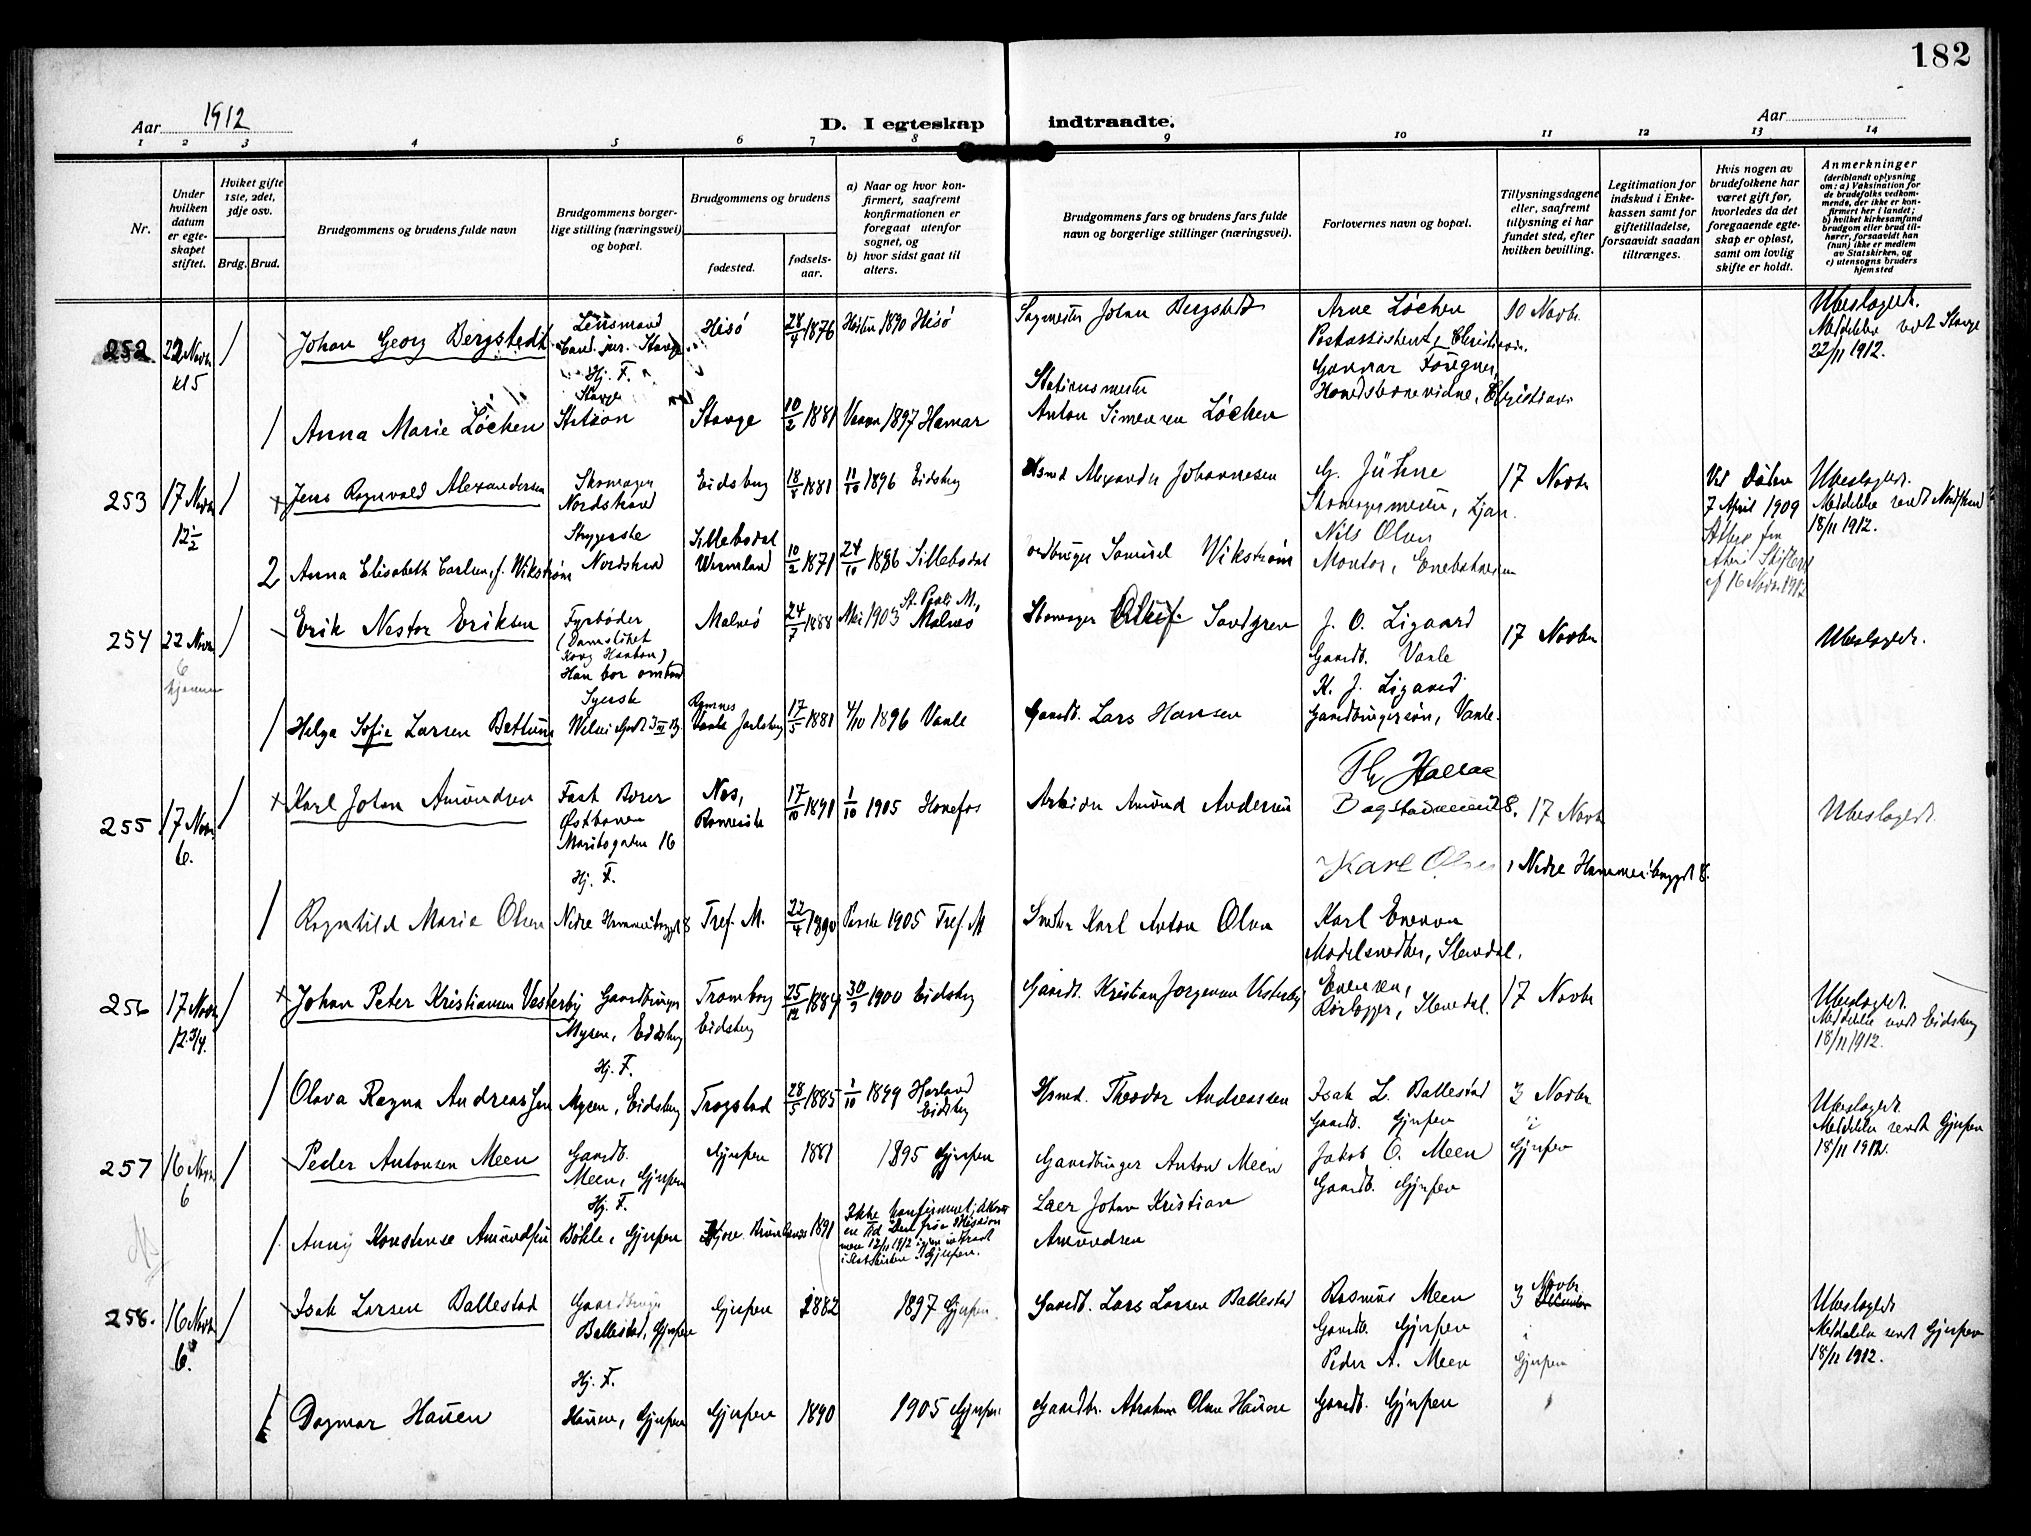 182
Aar 1912
D. I egteskap indtraadte.
Aar
1 2 3 4 5 6 7 8 9 10 11 12 13 14
Nr.
Under hvilken datum er egteskapet stiftet.
Hvilket gifte 1ste, 2det, 3dje osv.
Brdg. Brud.
Brudgommens og brudens fulde navn
Brudgommens borgerlige stilling (næringsvei) og bopæl.
Brudgommens og brudens
fødested.
fødselsaar.
a) Naar og hvor konfirmert, saafremt konfirmationen er foregaat utenfor sognet, og
b) hvor sidst gaat til alters.
Brudgommens fars og brudens fars fulde navn og borgerlige stillinger (næringsvei).
Forlovernes navn og bopæl.
Tillysningsdagene eller, saafremt tillysning ei har fundet sted, efter hvilken bevilling.
Legitimation for indskud i Enkekassen samt for giftetilladelse, forsaavidt saadan tiltrænges.
Hvis nogen av brudefolkene har været gift før, hvorledes da det foregaaende egteskap er opløst, samt om lovlig skifte er holdt.
Anmerkninger (deriblandt oplysning om: a) Vaksination for de brudefolks vedkommende, der ikke er konfirmert her i landet; b) hvilket kirkesamfund brudgom eller brud tilhører, forsaavidt han (hun) ikke er medlem av Statskirken, og c) utensogns bruders hjemsted
252 22 Novbr kl 5 / Johan Georg Bergstedt Lensmand Cand. jur. Stange Hisø 28/4 1876 Høsten 1890 Hisø Sagmester Johan Bergstedt Arne Løchen Postassistent, Christiania. 10 Novbr. Ubeslægtet. Meddelelse sendt Stange 22/11 1912.
Hj. F.
/ Anna Marie Løchen Stange Station Stange 10/2 1881 Vaaren 1897 Hamar Stationsmester Anton Simensen Løchen
253 17 Novbr 12 1/2 / Jens Ragnvald Alexandersen Skomager Nordstrand Eidsberg 18/8 1881 11/10 1896 Eidsberg Alexander Johannesen G. Jühne Skomagermester, Ljan. 17 Novbr 7 April 1909 Ubeslægtet. Meddelelse sendt Nordstrand 18/11 1912.
2 Anna Elisabeth Carlsen, f. Wikstrøm Strygerske Nordstrand Sillebodal Wermland 10/2 1871 24/10 1886 Sillebodal Samuel Wikstrøm Nils Olsen Montør, Enebakveien 16 Novbr. 1912
254 22 Novbr 6 hjemme / Erik Nestor Eriksen Fyrbøder Malmø 24/7 1888 Mai 1903 St. Pauli M., Malmø Skomager Sandgren J. O. Ligaard Gaardb. Vaale 17 Novbr Ubeslægtet.
(Damskibet Kong Haakon)
Han bor ombord
/ Helga Sofie Larsen Bettum Syerske Ramnes Vaale Jarlsberg 17/5 1881 4/10 1896 Vaale Gaardb. Lars Hansen K. J. Ligaard Gaardbrugersøn, Vaale.
255 17 Novbr 6. / Karl Johan Amundsen Fast Bærer Østbanen Maribogaten 16 Nes, Romerike 17/10 1891 1/10 1905 Hønefos Arbeider Amund Andersen Th Hallaa 17 Novbr Ubeslægtet.
Karl Olsen, Nedre Hammersbrygt 8.
Hj. F.
/ Ragnhild Marie Olsen Nedre Hammersbrygt 8 Tref. M. 22/4 1890 Paaske 1905 Tref. M Snedker Karl Anton Olsen
256 17 Novbr 12 3/4. / Johan Peter Kristiansen Vesterby Gaardbruger Mysen, Eidsberg Trømborg Eidsberg 25/12 1884 30/9 1900 Eidsberg Gaardb. Kristian Jørgensen Vesterby Karl Evensen Modelsnedker, Slemdal. Evensen, Rørlegger, Slemdal. 17 Novbr Ubeslægtet. Meddelelse sendt Eidsberg 18/11 1912.
Hj. F.
/ Olava Ragna Andreassen Mysen, Eidsberg Trøgstad 28/5 1885 1/10 1899 Hærland Eidsberg Theodor Andreassen
257 16 Novbr 6 / Peder Antonsen Meen Gaardb. Meen, Gjerpen Gjerpen 1881 1895 Gjerpen Gaardbruger Anton Meen Isak L. Ballestad Gaardb. Gjerpen 3 Novbr i Gjerpen Ubeslægtet. Meddelelse sendt Gjerpen 18/11 1912.
Jakob O. Meen Gaardb. Gjerpen
Hj. F.
/ Anny Konstanse Amundsen Bøhle, Gjerpen 1891 Ikke konfirmert, Lærer Johan Kristian Amundsen
258. 16 Novbr 6. / Isak Larsen Ballestad Gaardbruger Ballestad, Gjerpen Gjerpen 1882 1897 Gjerpen Gaardb. Lars Larsen Ballestad Rasmus Meen Gaardb. Gjerpen 3 Novbr i Gjerpen Ubeslægtet Meddelelse sendt Gjerpen 18/11 1912.
Peder A. Meen Gaardb. Gjerpen
Hj. F.
/ Dagmar Hauen Hauen, Gjerpen Gjerpen 1890 1905 Gjerpen Gaardbr. Abraham Olsen Hauen